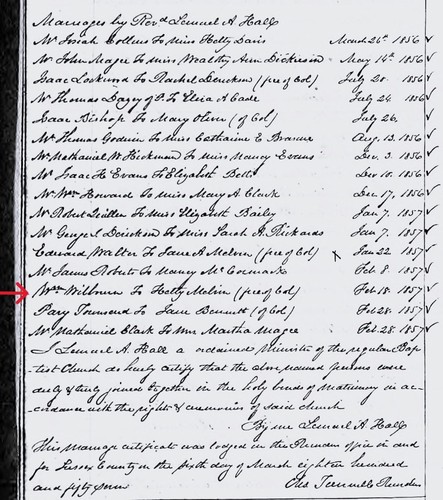 Marriages by Revd Lemuel A. Hall
Mr Josiah Collins To Miss Hetty Davis March 26th 1856
Mr John Magee To Miss Wealthy Ann Dickerson May 14th 1856
Isaac Lockwood To Rachel Derickson (free of Col) July 20 1856
Mr Thomas Dazey of P. To Eliza A Cade July 24 1856
Isaac Bishop To Mary Oliver (of Col) July 26
Mr Thomas Godwin To Miss Catharine E Aug. 13. 1856
Mr Nathaniel W Hickman To Miss Nancy Evans Dec. 3. 1856
Mr Isaac H Evans To Elizabeth Betts Dec 10. 1856
Mr Wm Howard To Miss Mary A Clark Dec 17, 1856
Mr Robert To Miss Elizabeth Baily Jan 7. 1857
Mr George L Derickson To Miss Sarah A Rickards Jan 7. 1857
Edward Walter To Jane B Melvin (free of Col) x Jan 22 1857
Mr James Roberts To Nancy McCormack Feb 8. 1857
Wm To Hetty Melvin (free of Col) Feb 18. 1857
Pary Townsend To Jane Bennett (of Col) Feb 28. 1857
Mr Nathaniel Clark To Mrs Martha Magee Feb 28 1857
I Lemuel A. Hall a ordained Minister of the regular Bap-
tist Church do hereby certify that the above named persons were
duly & truly joined together in the holy bonds of Matrimony in ac-
cordance with the rights & ceremonies of said church
By me Lemuel A Hall
This marriage certificate was lodged in the Recorders office in and
for Sussex County on the sixth day of March eighteen hundred
and fifty seven
Recorder